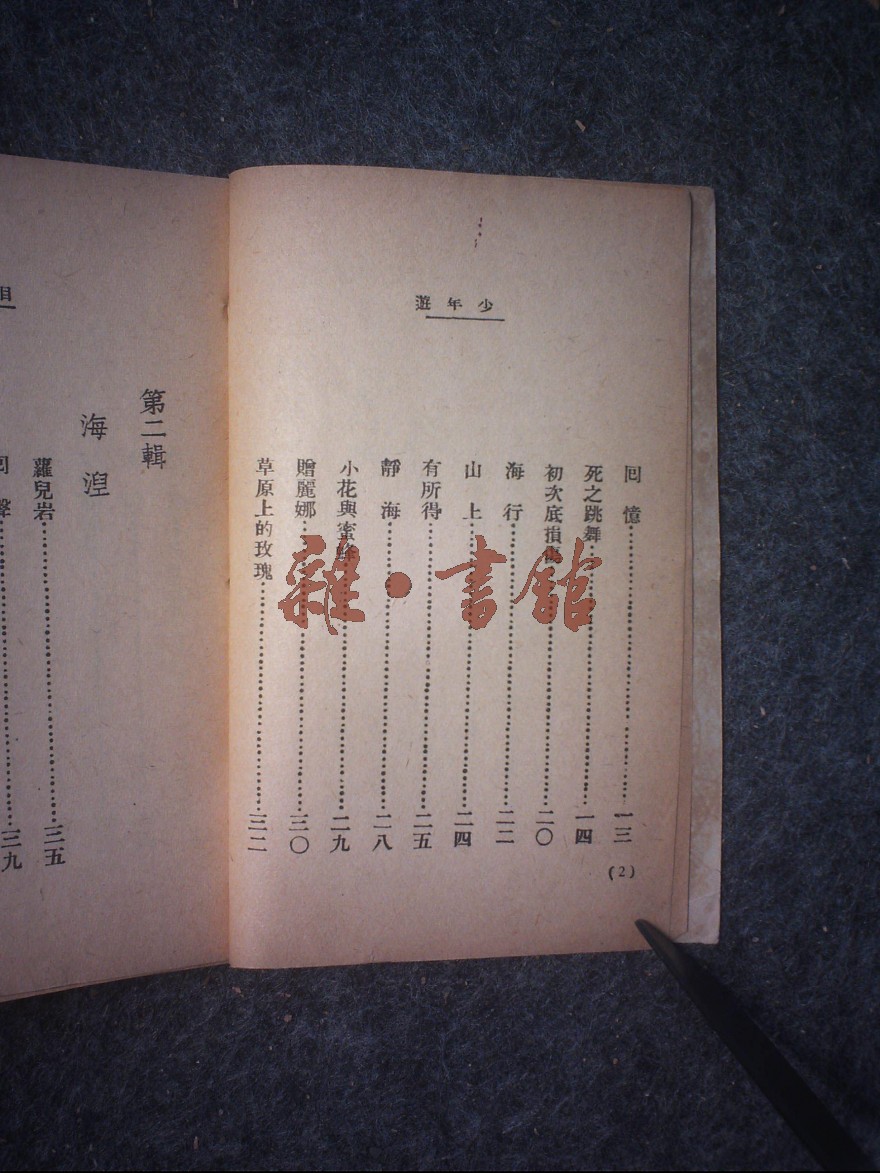 少年遊
回憶……………………一三
死之跳舞……………………一四
初次底損傷……………………二〇
海行……………………二二
山上……………………二四
有所得……………………二五
靜海……………………二八
小花與蜜蜂……………………二九
贈麗娜……………………三〇
草原上的玫瑰……………………三二
(2)
第二輯
海湼
蘿兒岩……………………三五
回聲……………………三九
雜·書館